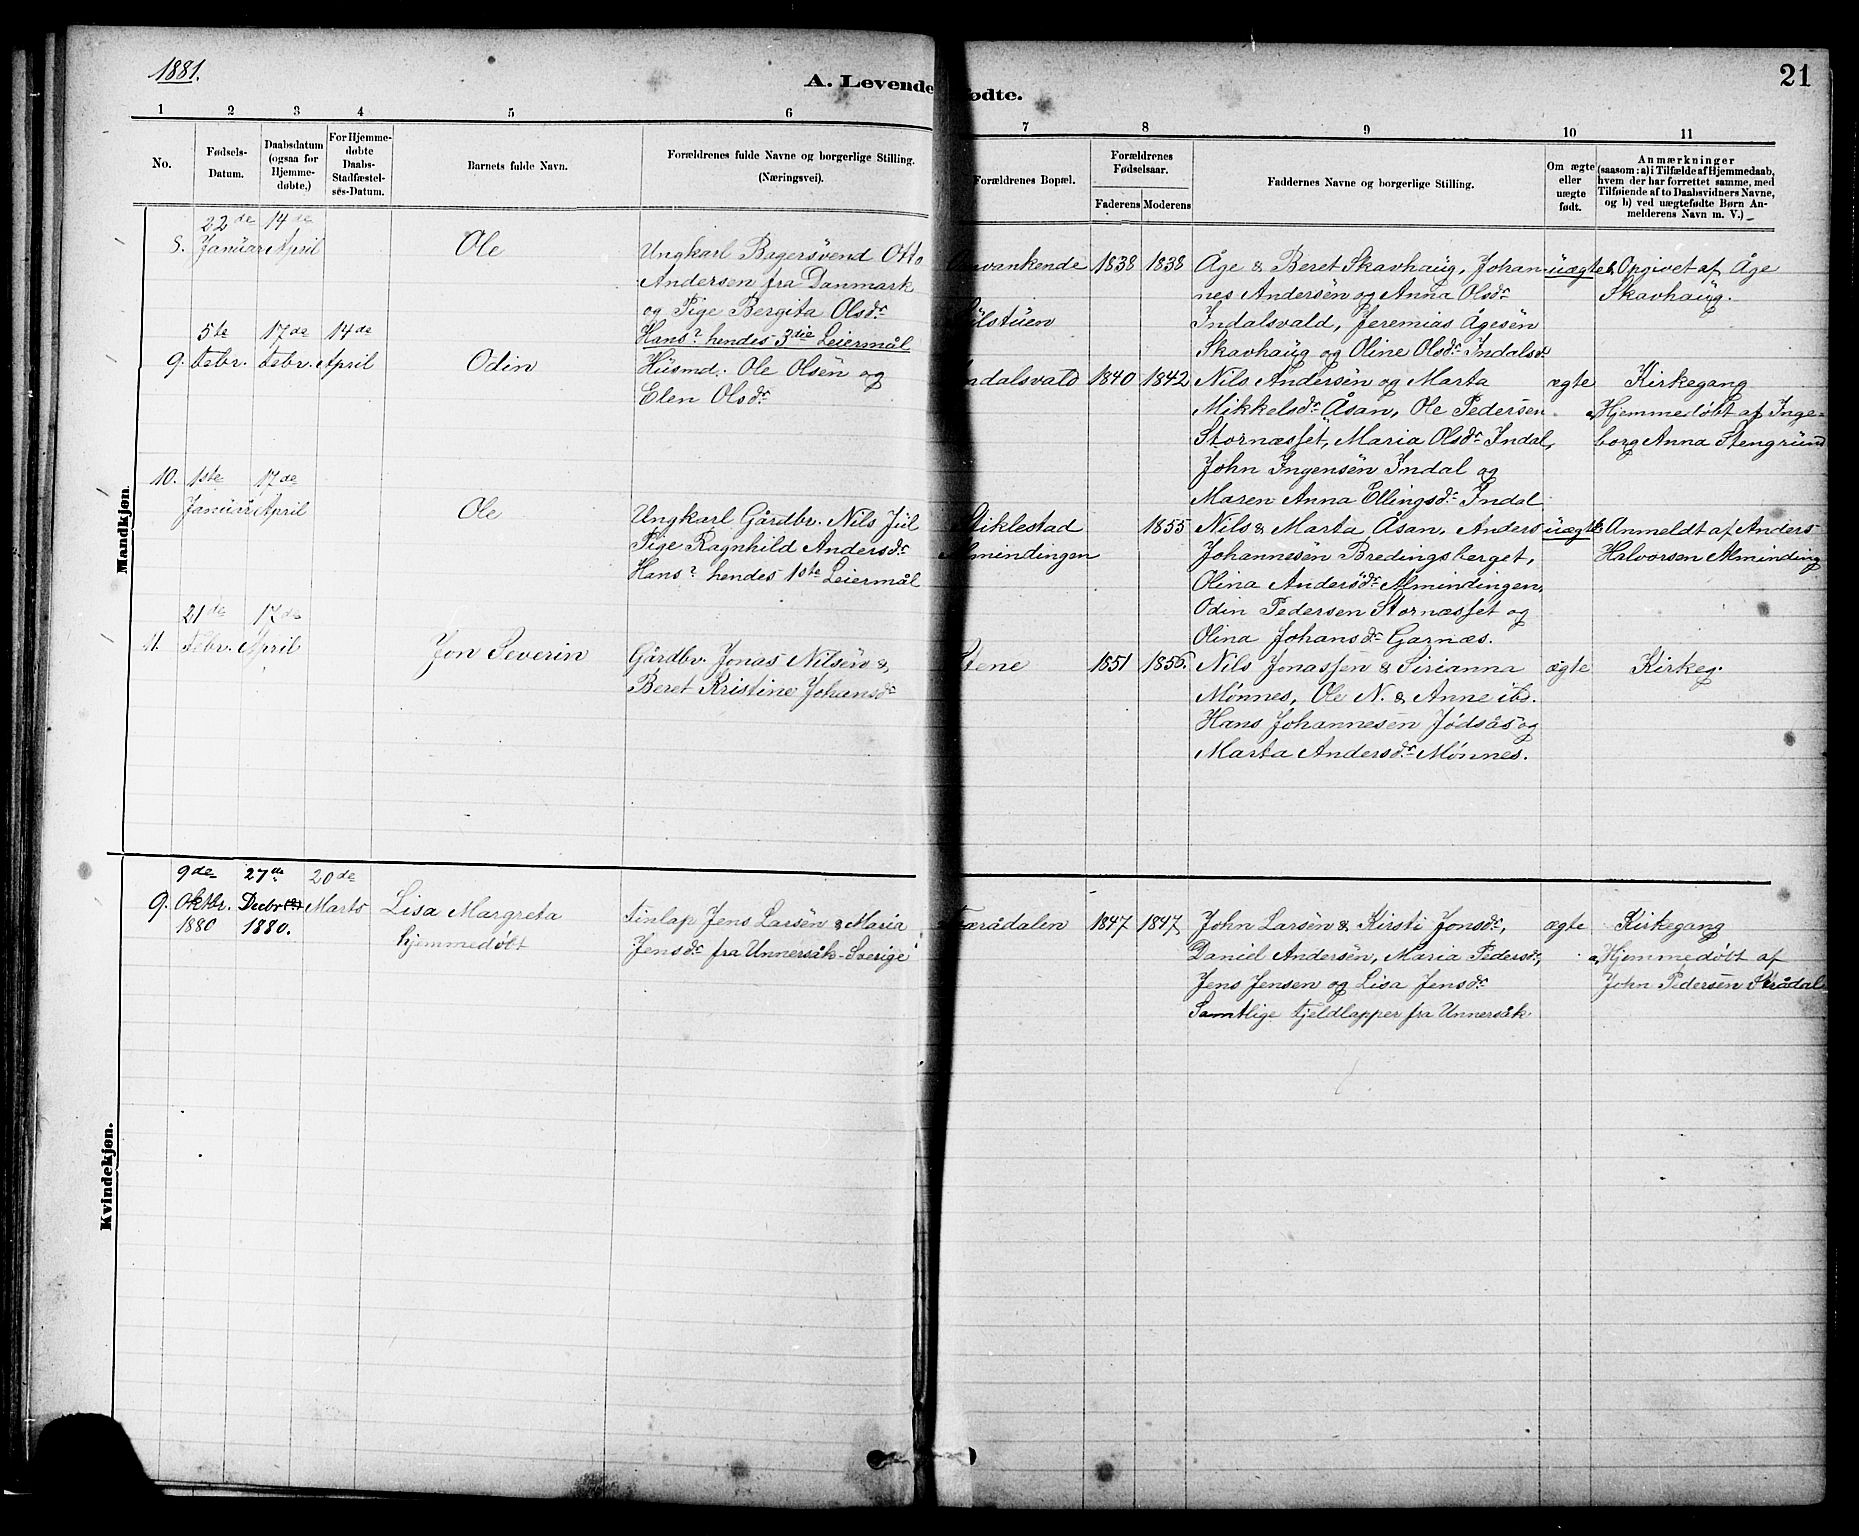 1881.
A. Levende
ødte.
21
1
2
3
4
5
6
7
8
9
10
11
No.
Fødsels-
Datum.
Daabsdatum
(ogsaa for
Hjemme-
døbte,)
For Hjemme-
døbte
Daabs-
Stadfæstel-
ses-Datum.
Barnets fulde Navn.
Forældrenes fulde Navne og borgerlige Stilling.
(Næringsvei).
Forældrenes Bopæl.
Forældrenes
Fødselsaar.
Faderens
Moderens
Faddernes Navne og borgerlige Stilling.
Om ægte
eller
uægte
født.
Anmærkninger
(saasom: a) i Tilfælde af Hjemmedaab,
hvem der har forrettet samme, med
Tilføiende af to Daabsvidners Navne,
og b) ved uægtefødte Børn An-
melderens Navn m. V.)
Mandkjøn.
8.
22de
Januar
14de
April
Ole
Ungkarl Bagersvend Otto
Andersen fra Danmark
og Pige Bergita Olsdr.
Hans? hendes 3die Leiermål
vankende
stuen
1838
1838
Åge & Beret Skavhaug, Johan-
nes Andersen og Anna Olsdr.
Indalsvald, Jeremias Ågesen
Skavhaug og Oline Olsdr. Indalsv
uægte
Opgivet af Åge
Skavhaug.
9.
5te
Febr.
17de
Febr.
14de
April
Odin
Husmd. Ole Olsen og
Elen Olsdr.
ndalsvald
1840
1842
Nils Andersen og Marta
Mikkelsdr. Åsan, Ole Pedersen
Stornæsset, Maria Olsdr. Indal,
John Ingensen Indal og
Maren Anna Ellingsdr. Indal
ægte
Kirkegang
a, Hjemmedøbt af Inge-
borg Anna Stengrund
10.
1ste
Januar
17de
April
Ole
Ungkarl Gårdbr. Nils Jul
Pige Ragnhild Andersdr.
Hans? hendes 1ste Leiermål
tiklestad
lmindingen
1855
Nils & Marta Åsan, Anders
Johannesen Bredingsberget,
Olina Andersdr. Almindingen,
Odin Pedersen Stornæsset og
Olina Johansdr. Garnæs.
uægte
Anmeldt af Anders
Halvorsen Alminding
11.
21de
Febr.
17de
April
Jon Severin
Gårdbr. Jonas Nilsen &
Beret Kristine Johansdr.
tene
1851
1856.
Nils Jonassen & Sirianna
Mønnes, Ole N. & Anne ibd.
Hans Johannesen Jødsås og
Marta Andersdr. Mønnes.
ægte
Kirkeg.
Kvindekjøn.
9.
9de
Oktbr.
1880
27de
Decbr
1880.
20de
Marts
Lisa Margreta
hjemmedøbt
Finlap Jens Larsen & Maria
Jensdr. fra Unnersåk-Sverige
Færådalen
1847
1847
John Larsen & Kirsti Jonsdr.,
Daniel Andersen, Maria Pedersdr.,
Jens Jensen og Lisa Jensdr.
Samtlige Fjeldlapper fra Unnersåk
ægte
Kirkegang
a, Hjemmedøbt af
John Pedersen